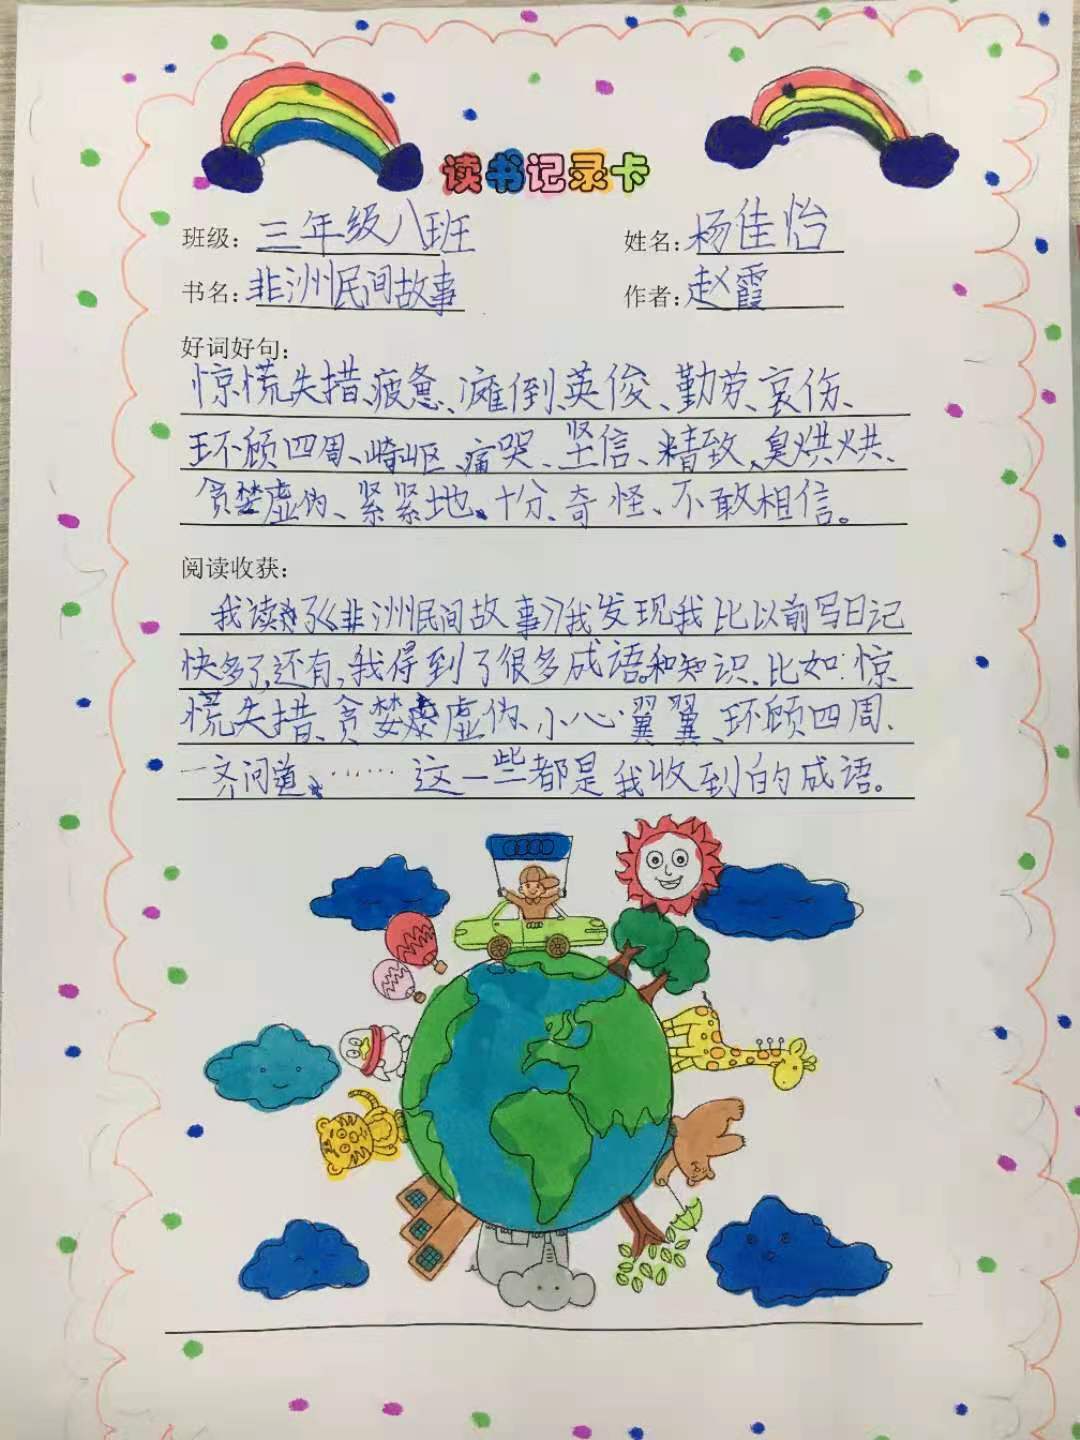 读书记录卡
班级：三年级八班 姓名：杨佳怡
书名：非洲民间故事 作者：赵霞
好词好句：
惊慌失措、疲惫、瘫倒、英俊、勤劳、哀伤、
环顾四周、崎岖、痛哭、坚信、精致、臭烘烘、
贪婪虚伪、紧紧地、十分、奇怪、不敢相信。
阅读收获：
我读了《非洲民间故事》我发现我比以前写日记
快多了，还有，我得到了很多成语和知识、比如：惊
慌失措、贪婪虚伪、小心翼翼、环顾四周、
一齐问道、……这一些都是我收到的成语。